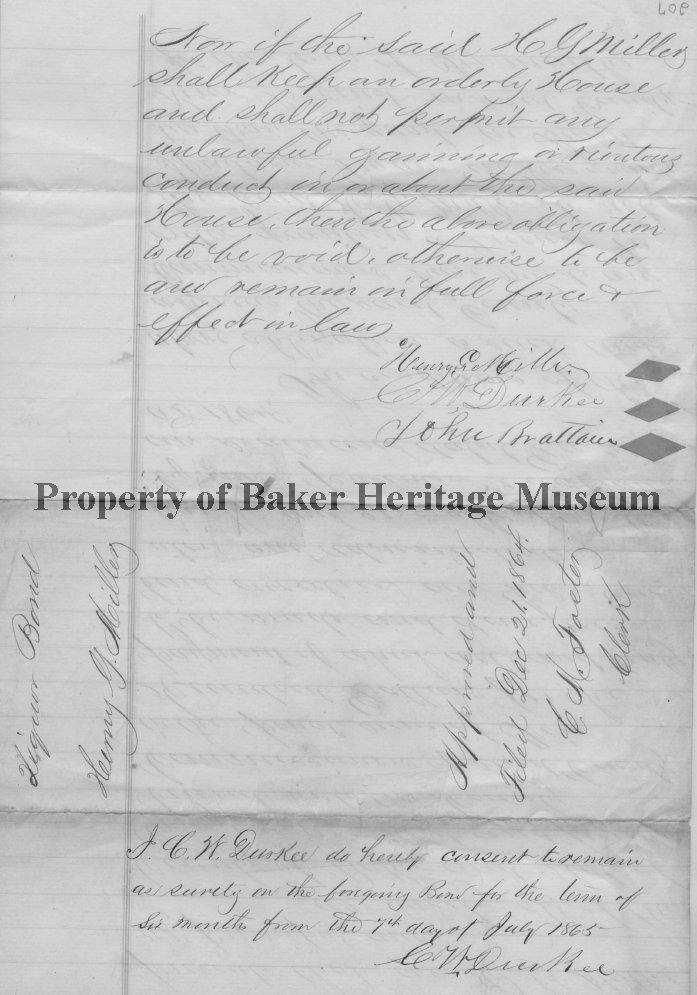 Now if the said H G Miller
shall keep an orderly House
and shall not permit any
unlawful gaming or riotous
conduct in or about the said
House, then the above obligation
is to be void, otherwise to be
and remain in full force &
effect in law
Henry G Miller
C W Durkee
John Brattain
Property of Baker Heritage Museum
Liquor Bond
Henry G. Miller
Approved and
Filed Dec 21, 1864.
C. M. Foster
Clerk
I. C. W. Durkee do hereby consent to remain
as surety on the foregoing Bond for the term of
Six months from the 7th day of July 1865
C W Durkee